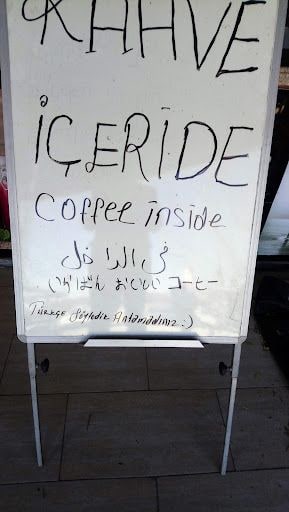 KAHVE
İÇERİDE
Coffee inside
في الداخل
いちばん おいしい コーヒー
Türkçe Söyledik Anlamadınız :)